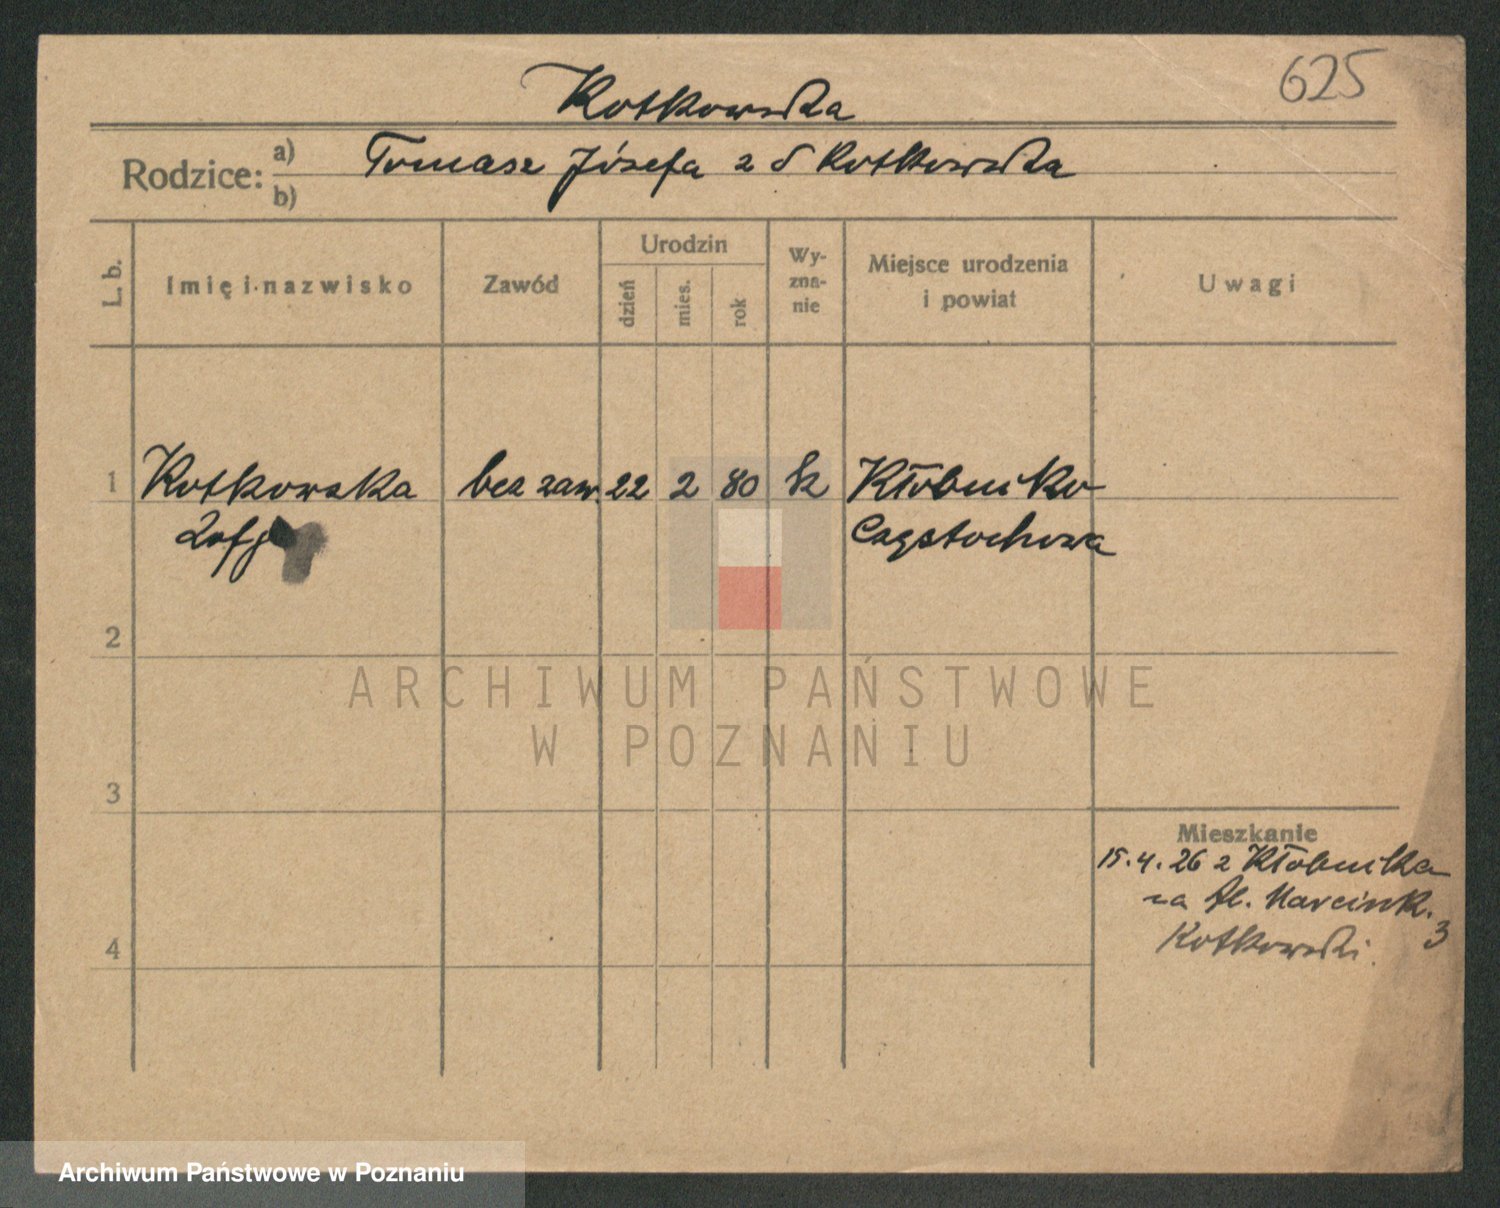 625
Kotkowska
Rodzice: a) Tomasz Józefa z d Kotkowska
b)
L. b. Imię i nazwisko Zawód Urodzin dzień mies. rok Wy-zna-nie Miejsce urodzenia i powiat Uwagi
1 Kotkowska bez zaw. 22 2 80 k Kłobucko
Zofja Częstochowa
2
ARCHIWUM PAŃSTWOWE
W POZNANIU
3
Mieszkanie
15.4.26 z Kłobucka
na Al. Marcink. 3
4 Kotkowski.
Archiwum Państwowe w Poznaniu